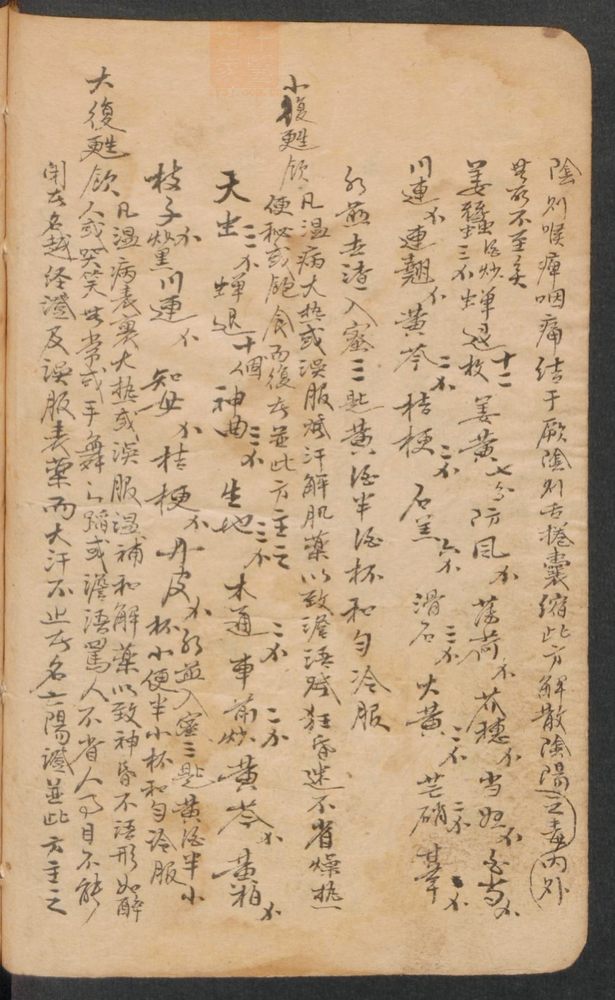 陰則喉痺咽痛結于厥陰則舌捲囊縮此方解散陰陽之毒内外
無所不至矣
姜蠶酒炒三个蟬退十二枚姜黃七分防風个薄荷个芥穗个当歸个白芍个
川連个連翹个黃芩二个桔梗二个石羔六个滑石三个大黃二个芒硝二个甘草个
水煎去渣入蜜三匙黄酒半酒杯和勻冷服
小復甦飲凡溫病大热或誤服發汗解肌藥以致澹语發狂昏迷不省燥热
便秘或飽食而復者並此方主之
天虫三个蟬退十個神曲三个生地三个木通二个車前炒二个黃芩个黃柏个
枝子炒黑个川連个知母个桔梗个丹皮个水煎入蜜三匙黄酒半小
杯小便半小杯和勻冷服
大復甦飲凡溫病表裏大热或误服溫補和解藥以致神昏不语形如醉
人或哭笑無常或手舞足蹈或澹语罵人不省人事目不能
閉者名越经證及誤服表藥而大汗不止者名亡陽證並此方主之